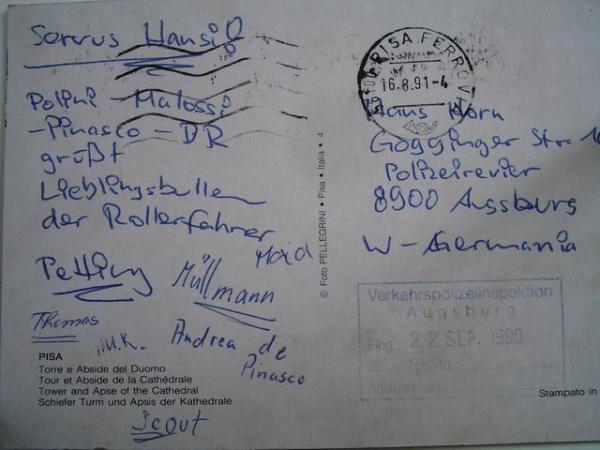 Servus Hansi!
Polini - Malossi
- Pinasco - DR
grüßt
Lieblingsbullen
der Rollerfahrer
Petting
Müllmann
Thomas
M.K.
Andrea de
Pinasco
Scout
PISA
Torre e Abside del Duomo
Tour et Abside de la Cathédrale
Tower and Apse of the Cathedral
Schiefer Turm und Apsis der Kathedrale
© Foto PELLEGRINI • Pisa • Italia • 4
PISA FERROV
16.8.91-4
Hans Horn
Gögginger Str.
Polizeirevier
8900 Augsburg
W-Germania
Verkehrspolizeiinspektion
Augsburg
Eing. 22. SEP. 1990
Tgb.
Ableben
Stampato in